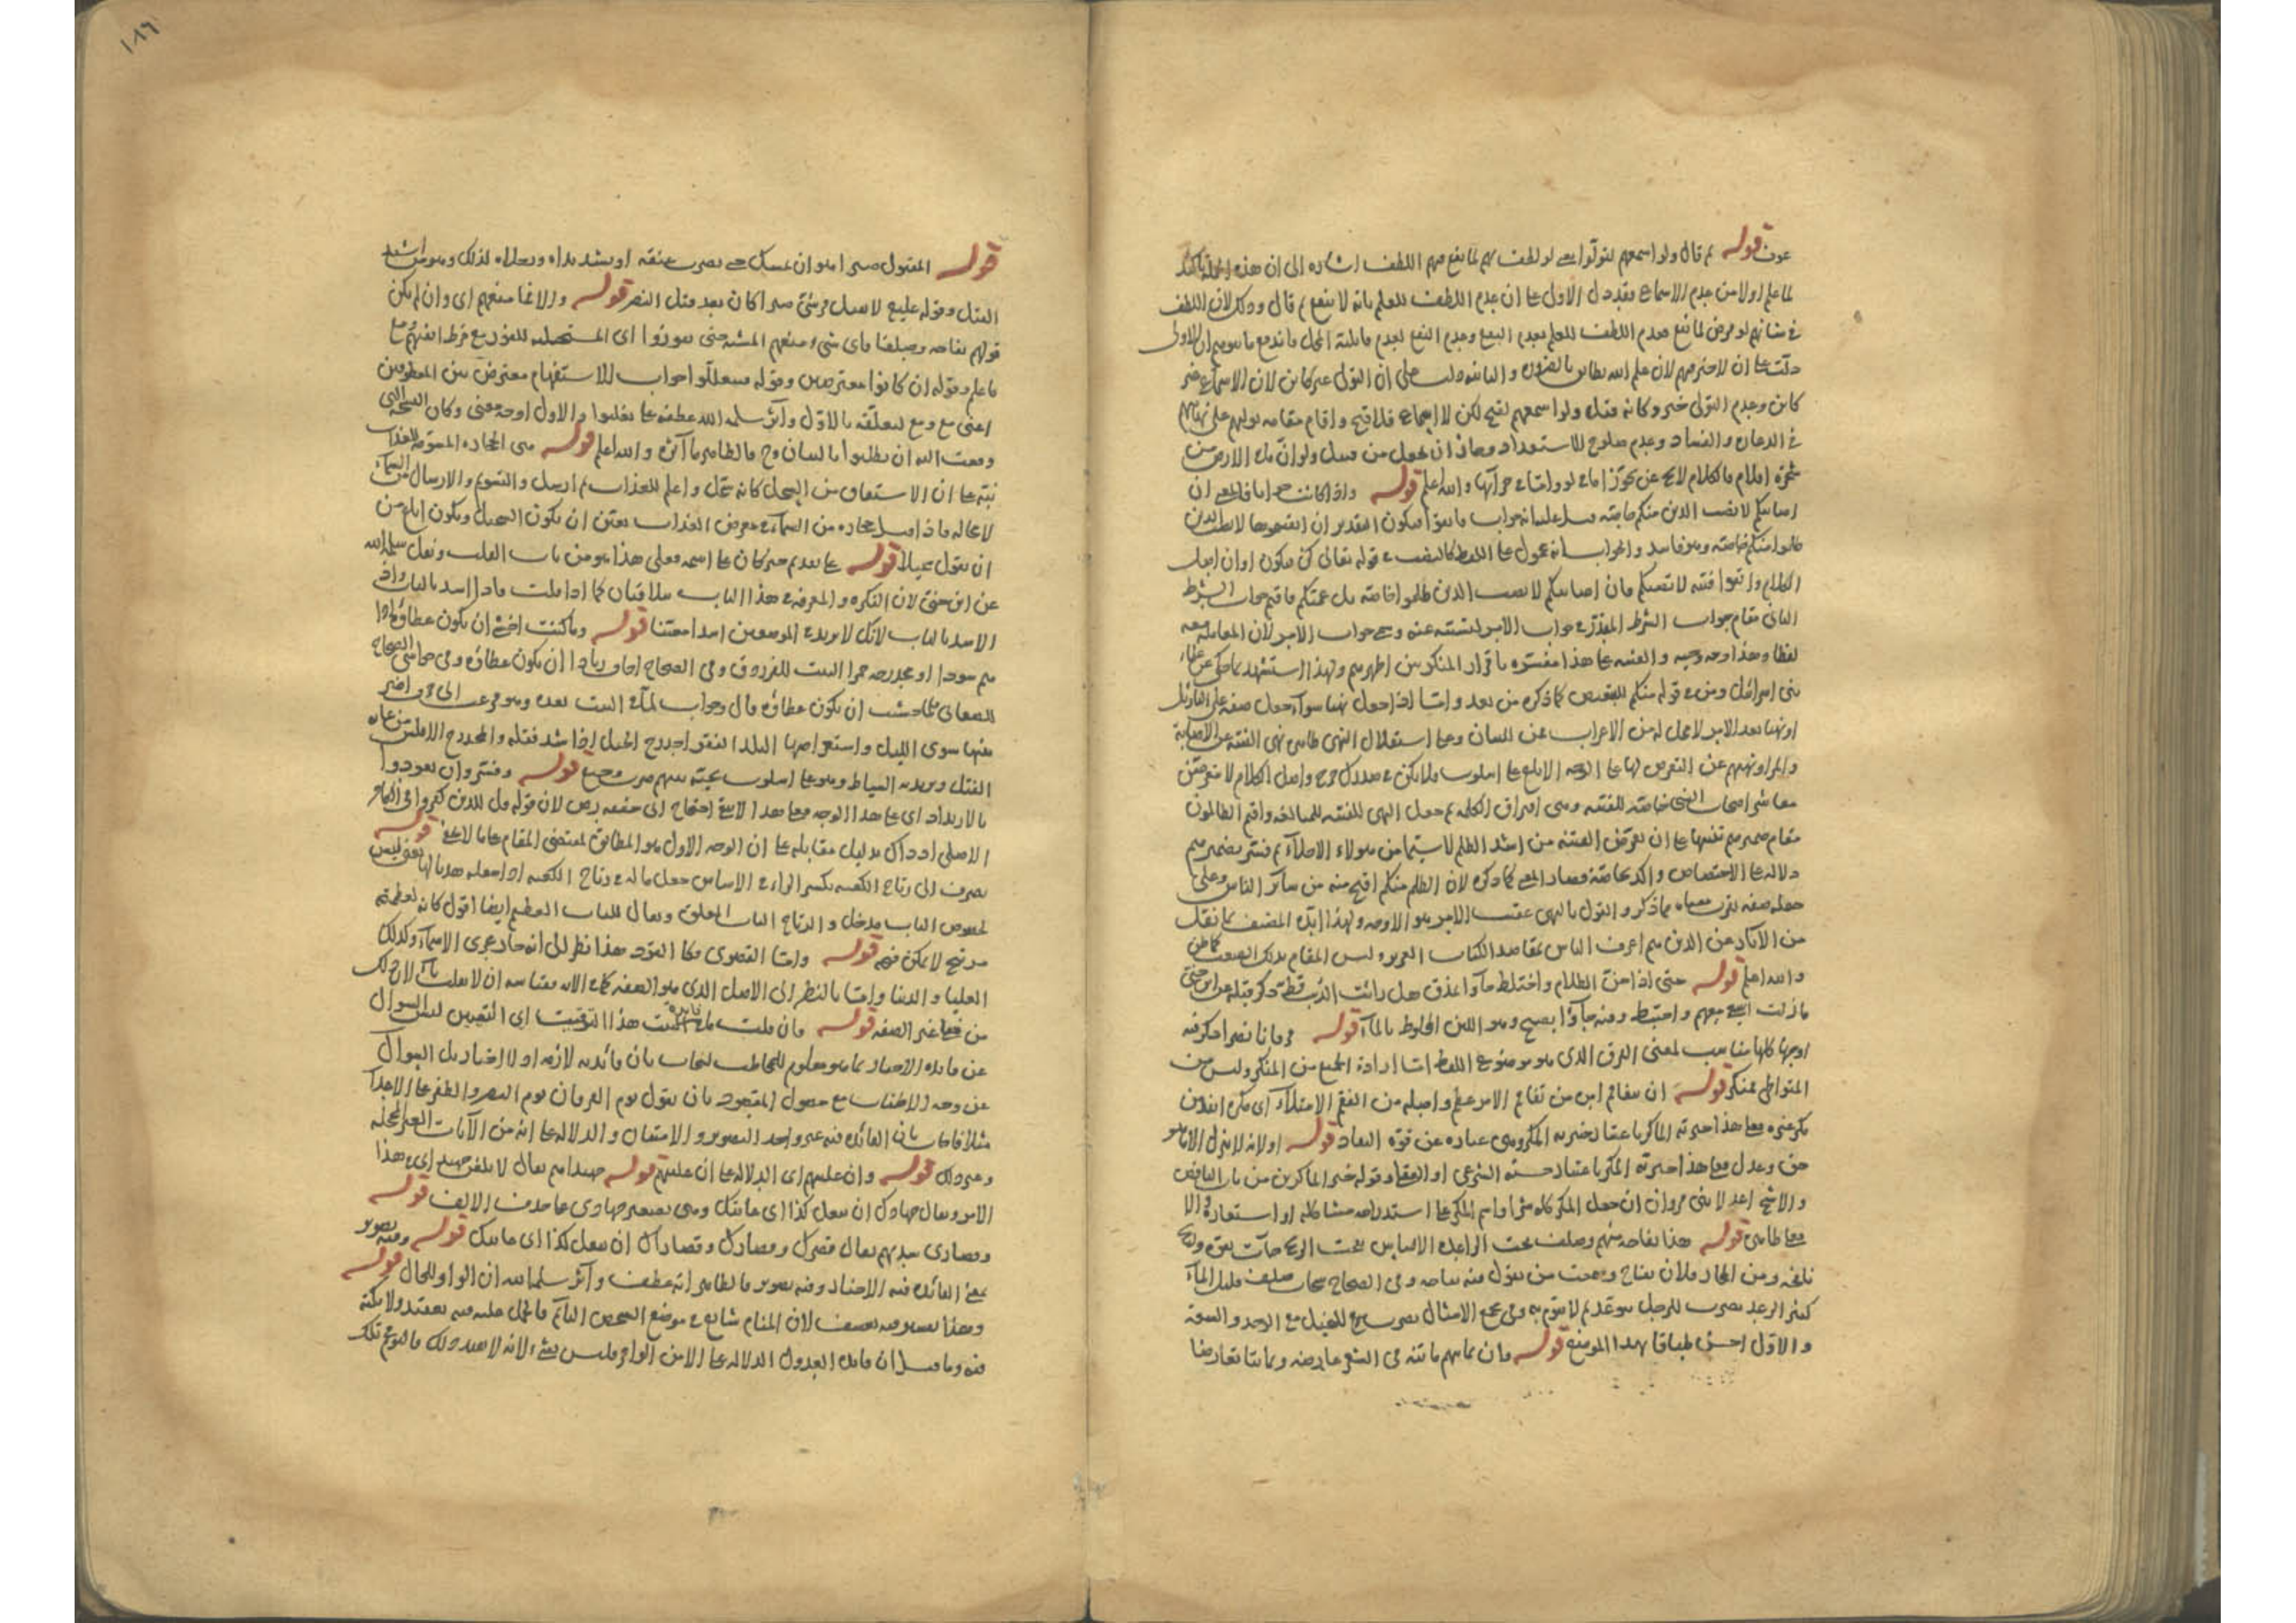 عون قوله ثم قال ولو اسمعهم لتولوا يعني لو لطف بهم لما نفع فيهم اللطف اشارة الى ان هذه
لما علم اولا من عدم الاسماع فقد دل الاول على ان عدم اللطف للعلم بانه لا ينفع ثم قال وذلك لان اللطف
في شانهم لو فرض لما نفع فعدم اللطف للعلم بعدم النفع وعدم النفع لعدم قابلية المحل فاندفع ما يتوهم ان الاولى
دلت على ان لا خير فيهم لان علم الله يطابق بالضرورة والثانية دلت على ان التولي غير كائن لان الاسماع غير
كائن وعدم التولي خير وكانه قيل ولو اسمعهم لقبح لكن لا اسماع فلا قبح واقام مقامه توليهم على
في الفساد وعدم صلوح الاستعداد ومعاذ ان يجعل من قبيل ولو ان ما في الارض من
شجرة اقلام فالكلام لا يخ عن تجوز اما في لو واما في جزائها والله اعلم قوله واذا كانت جوابا فالمعنى ان
اصابتكم لا تصيب الذين منكم خاصة قيل عليه انه جواب فاتقوا فيكون التقدير ان اتقيتموها لا تصيبن الذين
ظلموا منكم خاصة وهو فاسد والجواب انه محمول على اللفظ كالنصب في قوله تعالى كن فيكون او ان اصل
الكلام واتقوا فتنة لا تصيبكم فان اصابتكم لا تصيب الذين ظلموا خاصة بل عمتكم فاقيم جواب الشرط
الثاني مقام جواب الشرط المقدر في جواب الامر لتسببه عنه وسمي جواب الامر لان المعاملة معه
لفظا وهذا وجه وجيه والفتنة على هذا مفسرة باقرار المنكر بين اظهرهم ولهذا استشهد بما حكي عن علماء
بني اسرائيل ومن في قوله منكم للتبعيض كما ذكره من بعد واما اذا جعل نهيا سواء جعل صفة على التاويل
او نهيا بعد الامر لا محل له من الاعراب فمن للبيان وعلى استقلال النهي ظاهر نهي الفتنة عن الاصابة
والمراد نهيهم عن التعرض لها على الوجه الابلغ على اسلوب فلا يكن في صدرك حرج واصل الكلام لا تتعرضن
معاشر اصحاب النبي خاصة للفتنة وهي افتراق الكلمة ثم جعل النهي للفتنة للمبالغة واقيم الظالمون
مقام ضميرهم تنبيها على ان تعرض الفتنة من اشد الظلم لا سيما من هؤلاء الاجلاء ثم فسر بضميرهم
دلالة على الاختصاص واكد بخاصة فصار المعنى كما ذكره لان الظلم منكم اقبح منه من سائر الناس وعلى
جعله صفة يقرب معناه مما ذكر والقول بالنهي عقيب الامر هو الاوجه ولهذا ايده المصنف بما نقل
من الاثار عن الذين هم اعرف الناس بمقاصد الكتاب العزيز وليس المقام بذلك الصعب كما ظن
والله اعلم قوله حتى اذا جن الظلام واختلط جاؤا بمذق هل رايت الذئب قط
ما زلت اسعى معهم واختبط ومنه جاؤا بضيح وهو اللبن المخلوط بالماء قوله
اوجها كلها مناسب لمعنى الفرق الذي هو موضوع اللفظ اما ارادة الجمع بين المنكر وليس من
قوله ان يتفاقم اين من تفاقم الامر عظم واصله من الفقم الامتلاء اي مكره انفذ من
مكر غيره فعلى هذا خيرية الماكر باعتبار خيرية المكر وهي عبارة عن قوة النفاذ قوله او لانه لا ينزل الا ما هو
حق وعدل فعلى هذا خيرية المكر باعتبار حسنه الشرعي او العقلي وقوله خير الماكرين من باب الناقص
والاشج اعدلا بني مروان ان جعل المكر كله شرا واسم المكر على استدراجه مشاكلة او استعارة والا
فعلى ظاهره قوله هذا نفاجة منهم وصلف تحت الراعدة الاساس نفجت الريح جاءت بقوة وريح
نافجة ومن المجاز فلان نفاج وسمعت من يقول فيه نفاجة وفي الصحاح سحاب صلف قليل الماء
كثير الرعد يضرب للرجل يتوعد ثم لا يقوم به وفي مجمع الامثال يضرب للبخيل مع الوجد والسعة
والاول احسن طباقا بهذا الموضع قوله
١٨٦
قوله المقتول صبرا هو ان يمسك حتى يضرب عنقه او يشد يداه ورجلاه لذلك وهو من اشد
القتل وقوله عليه لا يقتل قرشي صبرا كان بعد قتل النضر قوله والا فما منعهم اي وان لم يكن
قولهم نفاجة وصلفا فاي شيء منعهم المشية حتى يفوزوا اي المستحصلة للفوز مع فرط انفتهم ومع
ما علم وقوله ان كانوا معترض بين وقوله فيعللوا جواب الاستفهام معترض بين المعطوفين
اعني مع ومع لتعلقه بالاول وآثر سلمه الله عطفه على يغلبوا والاول اوجه معنى وكان النسخة التي
وقعت اليه ان يطلبوا بالبيان وح فالظاهر ما آثره والله اعلم قوله هي الحجارة المسومة للعذاب
نبه على ان الاشتقاق من السجل كانه سجل واعلم للعذاب ثم ارسل والتسويم والارسال من السماء
لا محالة فاذا قيل حجارة من السماء في معرض العذاب تعين ان يكون السجيل ويكون ابلغ من
ان يقول سجيلا قوله على تقديم خبر كان على اسمه فعلى هذا هو من باب القلب ونقل سلمه الله
عن ابن جني لان النكرة والمعرفة في هذا الباب متلاقيان كما اذا قلت فاذا اسد بالباب واذا
الاسد بالباب لانك لا تريد في الموضعين اسدا معينا قوله وما كنت اخشى ان يكون عطاؤه
اداهم سودا او محدرجة حمرا البيت للفرزدق وفي الصحاح اخاف زيادا ان يكون عطاؤه وفي حواشي الصحاح
للصغاني فلما خشيت ان يكون عطاؤه قال وجواب لما في البيت بعده وهو فزعت الى حرف اضر
بنيها سرى الليل واستعراضها البلد القفرا حدرج الحبل اذا شد فتله والمحدرج الاملس من غاية
الفتل ويريد به السياط وهو على اسلوب تحية بينهم ضرب وجيع قوله وفسر وان يعودوا
بالارتداد اي على هذا الوجه فعلى هذا الآية احتاج الى
الاصلي او ذاك بدليل مقابله على ان الوجه الاول هو المطابق لمقتضى المقام على ما لا يخفى قوله
يصرف الى رتاج الكعبة بكسر الراء في الاساس جعل ماله في رتاج الكعبة اذا جعله هديا اليها يعني ليس
لخصوص الباب مدخل والرتاج الباب المغلق ويقال للباب العظيم ايضا اقول كانه لعظمه
مرتج لا يكن فيه قوله واما القصوى فكا القود هذا نظر الى انه صار مجرى الاسماء وكذلك
العليا والدنيا واما بالنظر الى الاصل الذي هو الصفة
من فعلى غير الصفة قوله فان قلت ما فائدة هذا التوقيت اي التعيين ليس السؤال
عن فائدة الاخبار بما هو معلوم للمخاطب ليجاب بان فائدته لازمه اذ لا اخبار بل السؤال
عن وجه الاطناب مع حصول المقصود بان يقول يوم الفرقان يوم النصر والظفر على الاعداء
مثلا فاجاب بان الفائدة فيه غير واحد التصوير والامتنان والدلالة على انه من الآيات الغر المحجلة
وغير ذلك قوله وان غلبتهم اي الدلالة على ان غلبتهم قوله جهيداهم يقال لابلغن جهيداي في هذا
الامر ويقال جهادك ان تفعل كذا اي غايتك وهي تصغير جهادى على حذف الالف قوله
وقصارى شدتهم يقال قصرك وقصارك وقصاراك ان تفعل كذا اي غايتك قوله وفيه تصوير
يعني الفائدة فيه الاخبار وفيه تصوير فالظاهر انه عطف وآثر سلمه الله ان الواو للحال قوله
وهذا تفسير فيه تعسف لان المنام شايع في موضع الشخص النائم فالحمل على خلافه تعقيد ولا نكتة
فيه وما قيل ان فائدة العدول الدلالة على الامن الوافر فليس بشيء لانه لا يفيد ذلك فالنوم في تلك